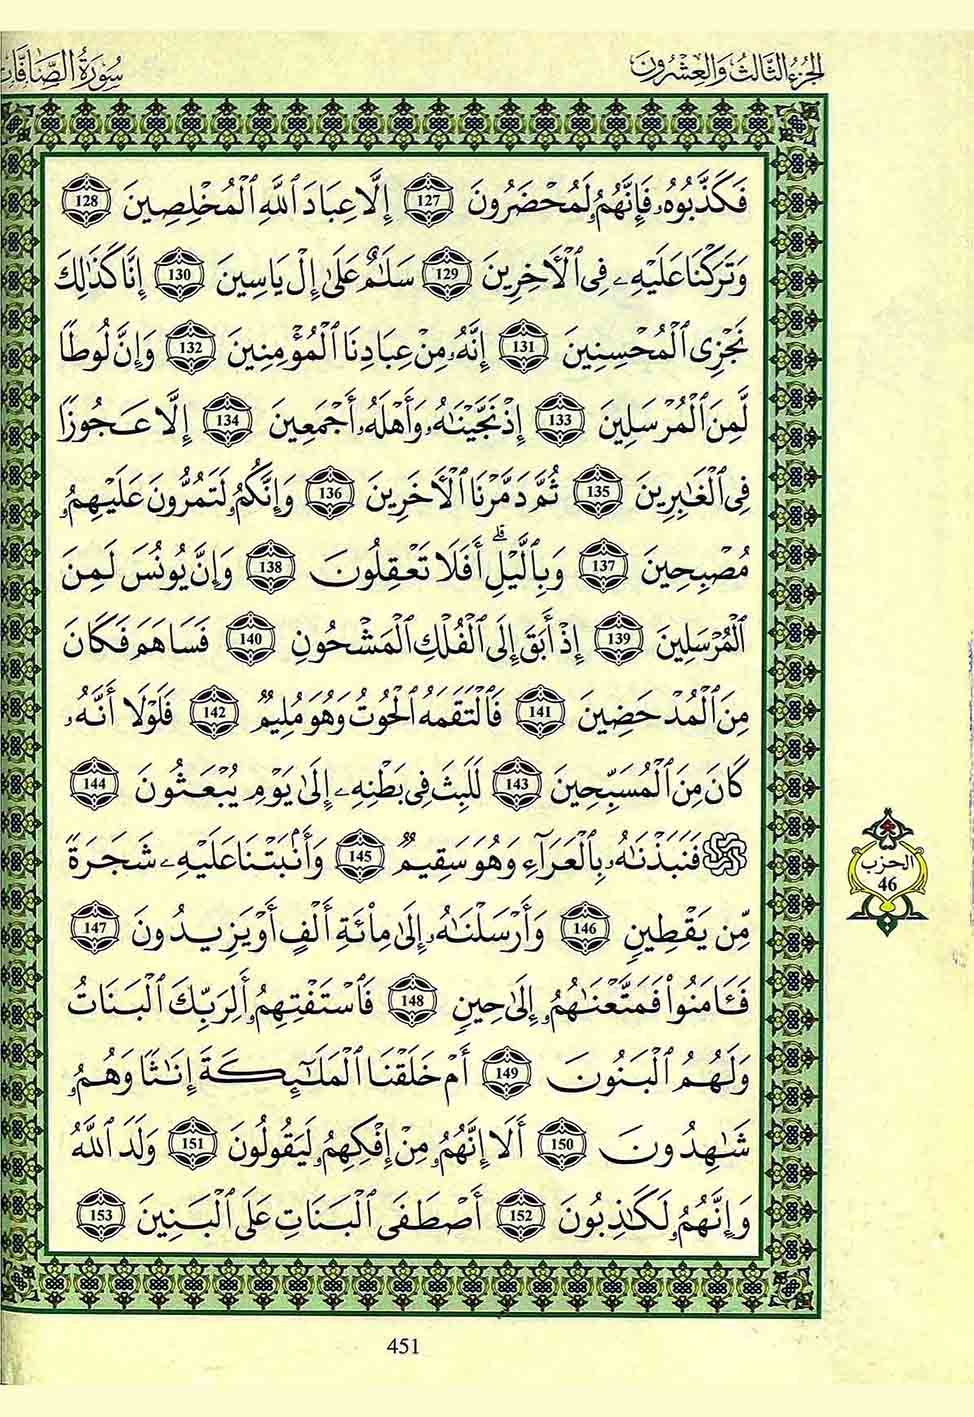 الجزء الثالث والعشرون
سورة الصافات
فَكَذَّبُوهُۥ فَإِنَّهُمُۥ لَمُحْضَرُونَ 127 إِلَّا عِبَادَ ٱللَّهِ ٱلْمُخْلِصِينَ 128
وَتَرَكْنَا عَلَيْهِۦ فِى ٱلْأَخِرِينَ 129 سَلَٰمٌ عَلَىٰ إِلْ يَاسِينَ 130 إِنَّا كَذَٰلِكَ
نَجْزِى ٱلْمُحْسِنِينَ 131 إِنَّهُۥ مِنْ عِبَادِنَا ٱلْمُؤْمِنِينَ 132 وَإِنَّ لُوطًا
لَّمِنَ ٱلْمُرْسَلِينَ 133 إِذْ نَجَّيْنَٰهُۥ وَأَهْلَهُۥ أَجْمَعِينَ 134 إِلَّا عَجُوزًا
فِى ٱلْغَٰبِرِينَ 135 ثُمَّ دَمَّرْنَا ٱلْأَخَرِينَ 136 وَإِنَّكُمُۥ لَتَمُرُّونَ عَلَيْهِمُۥ
مُصْبِحِينَ 137 وَبِالَّيْلِۗ أَفَلَا تَعْقِلُونَ 138 وَإِنَّ يُونُسَ لَمِنَ
ٱلْمُرْسَلِينَ 139 إِذْ أَبَقَ إِلَى ٱلْفُلْكِ ٱلْمَشْحُونِ 140 فَسَاهَمَ فَكَانَ
مِنَ ٱلْمُدْحَضِينَ 141 فَالْتَقَمَهُ ٱلْحُوتُ وَهُوَ مُلِيمٌ 142 فَلَوْلَا أَنَّهُۥ
كَانَ مِنَ ٱلْمُسَبِّحِينَ 143 لَلَبِثَ فِى بَطْنِهِۦ إِلَىٰ يَوْمِ يُبْعَثُونَ 144
فَنَبَذْنَٰهُۥ بِالْعَرَآءِ وَهُوَ سَقِيمٌ 145 وَأَنۢبَتْنَا عَلَيْهِۦ شَجَرَةً
مِّن يَقْطِينٍ 146 وَأَرْسَلْنَٰهُۥ إِلَىٰ مِاْئَةِ أَلْفٍ أَوْ يَزِيدُونَ 147
فَـَٔامَنُواْ فَمَتَّعْنَٰهُمُۥ إِلَىٰ حِينٍ 148 فَاسْتَفْتِهِمُۥ أَلِرَبِّكَ ٱلْبَنَاتُ
وَلَهُمُ ٱلْبَنُونَ 149 أَمْ خَلَقْنَا ٱلْمَلَٰٓئِكَةَ إِنَٰثًا وَهُمُۥ
شَٰهِدُونَ 150 أَلَا إِنَّهُمُۥ مِنْ إِفْكِهِمُۥ لَيَقُولُونَ 151 وَلَدَ ٱللَّهُ
وَإِنَّهُمُۥ لَكَٰذِبُونَ 152 أَصْطَفَى ٱلْبَنَاتِ عَلَى ٱلْبَنِينَ 153
الحزب
46
451